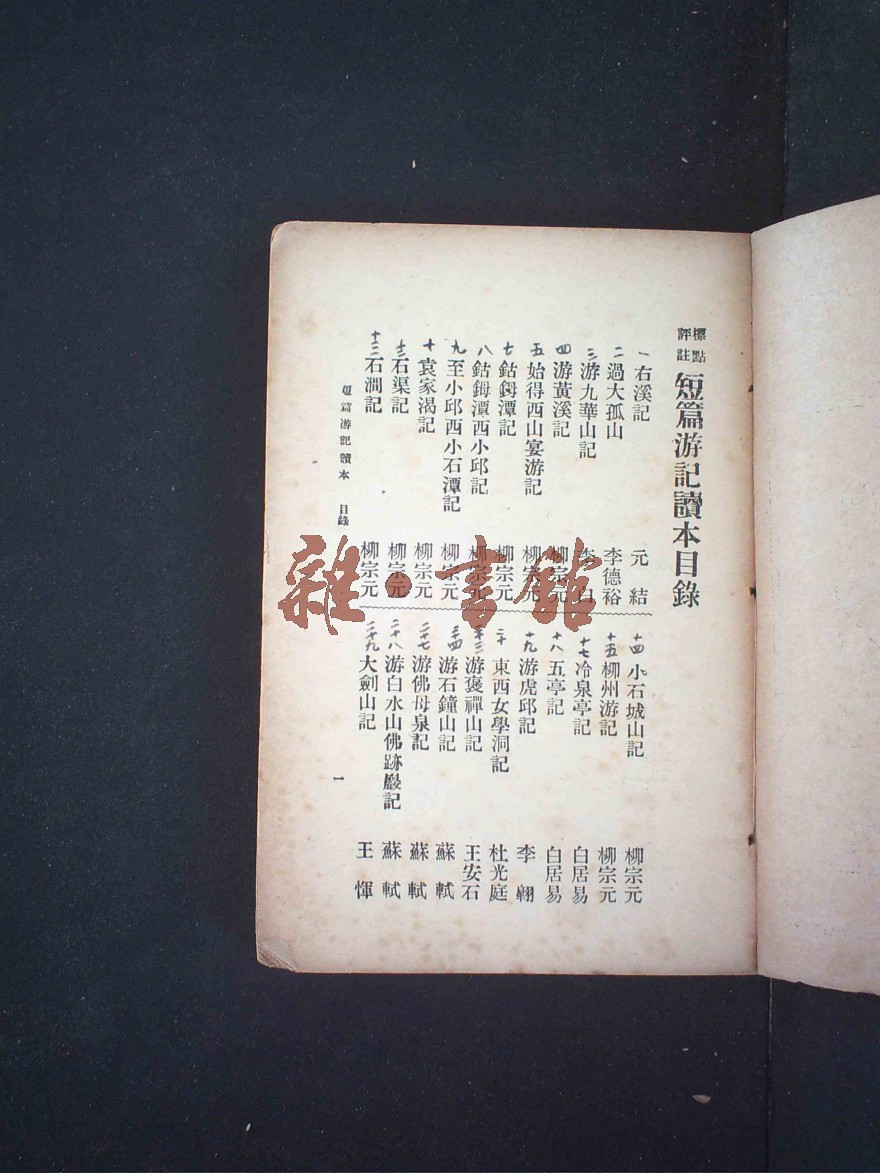 標點評註 短篇游記讀本目錄
一 右溪記 元結
二 過大孤山 李德裕
三 游九華山記 李白
四 游黃溪記 柳宗元
五 始得西山宴游記 柳宗元
七 鈷鉧潭記 柳宗元
八 鈷鉧潭西小邱記 柳宗元
九 至小邱西小石潭記 柳宗元
十 袁家渴記 柳宗元
石渠記 柳宗元
石澗記 柳宗元
十四 小石城山記 柳宗元
十五 柳州游記 柳宗元
十七 冷泉亭記 白居易
十八 五亭記 白居易
十九 游虎邱記 李翺
二十 東西女學洞記 杜光庭
游褒禪山記 王安石
游石鐘山記 蘇軾
二十七 游佛母泉記 蘇軾
二十八 游白水山佛跡巖記 蘇軾
二十九 大劍山記 王惲
短篇游記讀本 目錄
一
雜·書館